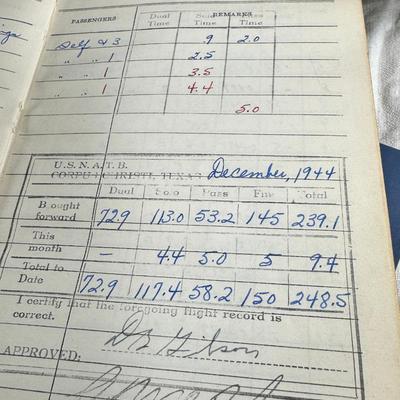 PASSENGERS Dual Time Solo Time REMARKS Pass Time
Self & 3 .9 2.0
" " 1 2.5
" " 1 3.5
" " 1 4.4
5.0
U.S.N.A.T.B.
CORPUS CHRISTI, TEXAS December, 1944
Dual Solo Pass Fur Total
B ought forward 72.9 113.0 53.2 145 239.1
This month — 4.4 5.0 5 9.4
Total to Date 72.9 117.4 58.2 150 248.5
I certify that the foregoing flight record is
correct.
D B Gibson
APPROVED: